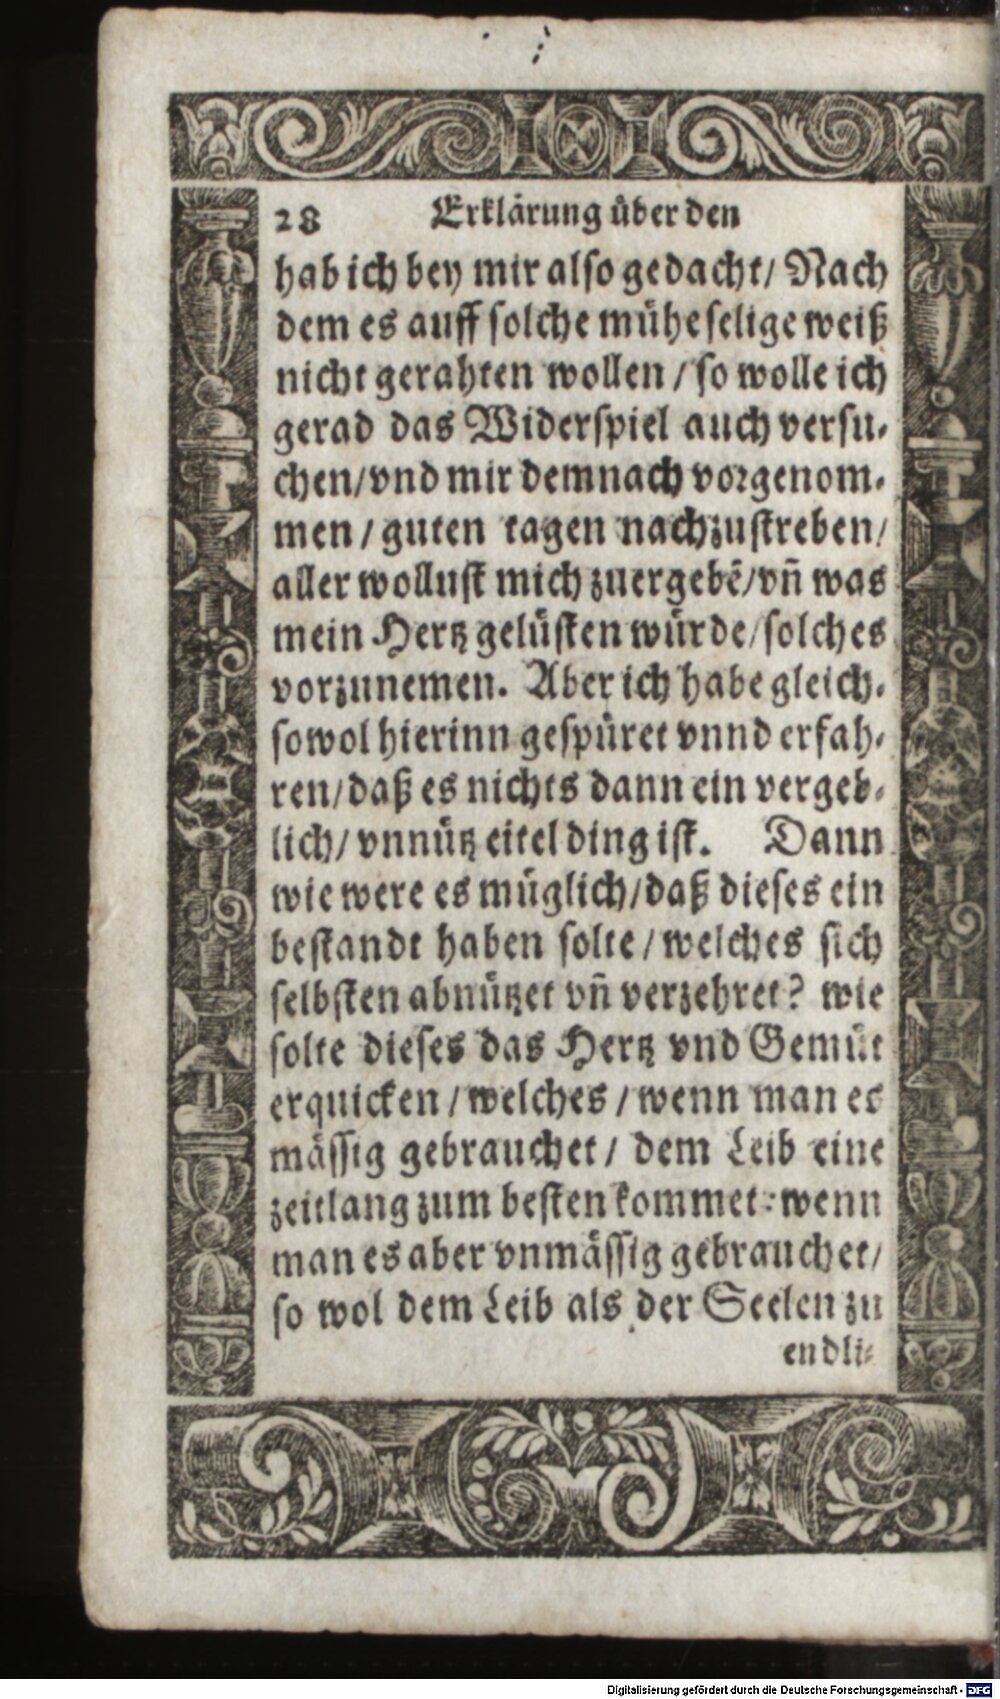 28 Erklärung über den
hab ich bey mir also gedacht/ Nach
dem es auff solche müheselige weiß
nicht gerahten wollen / so wolle ich
gerad das Widerspiel auch versu-
chen/vnd mir demnach vorgenom-
men / guten tagen nachzustreben/
aller wollust mich zuergebẽ/vñ was
mein Hertz gelüsten würde/solches
vorzunemen. Aber ich habe gleich-
sowol hierinn gespüret vnnd erfah-
ren/daß es nichts dann ein vergeb-
lich/ vnnütz eitel ding ist. Dann
wie were es müglich/daß dieses ein
bestandt haben solte / welches sich
selbsten abnützet vñ verzehret? wie
solte dieses das Hertz vnd Gemüt
erquicken / welches / wenn man es
mässig gebrauchet / dem Leib eine
zeitlang zum besten kommet: wenn
man es aber vnmässig gebrauchet/
so wol dem Leib als der Seelen zu
endli-
Digitalisierung gefördert durch die Deutsche Forschungsgemeinschaft - DFG